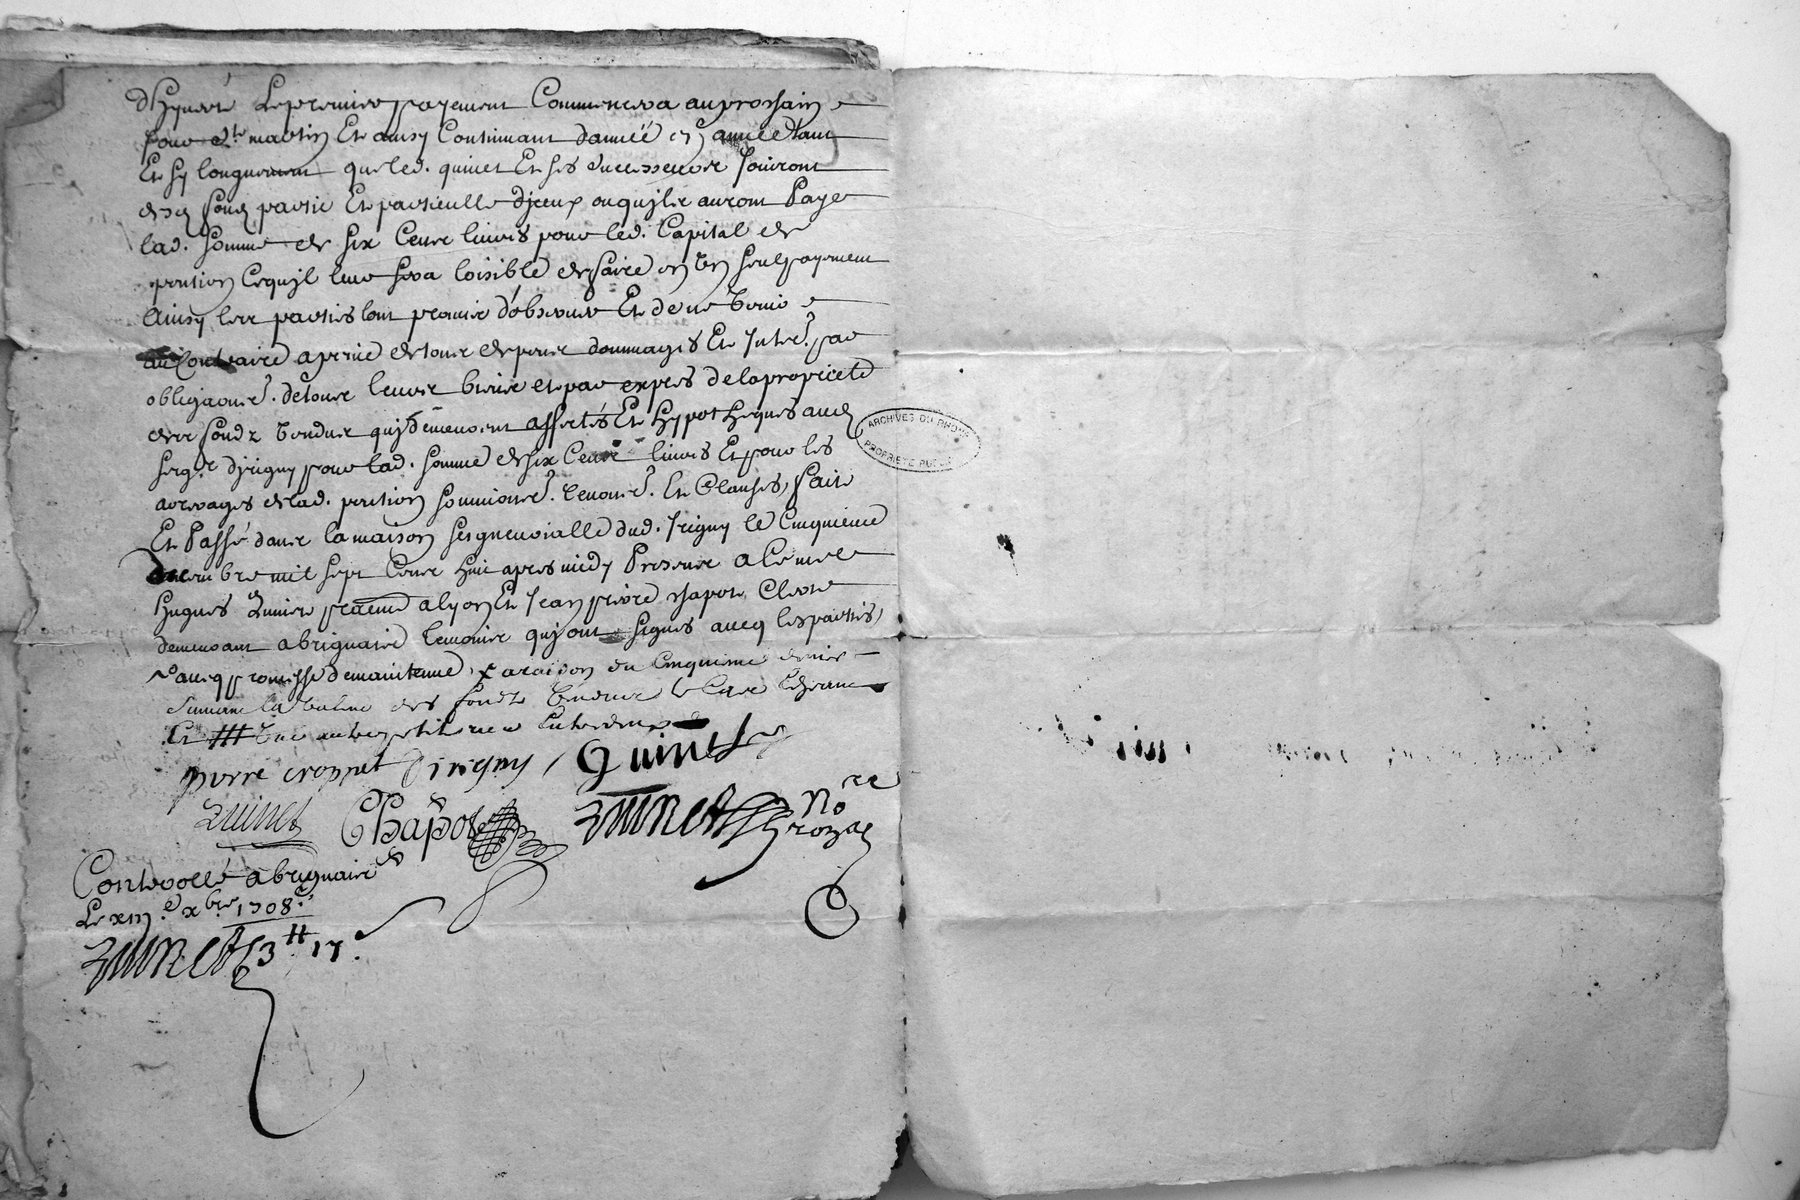 d'hyverts Le premier payement Commencera au prochain
jour St martin Et ainsy Continuant d'année en année tant
Et sy longuement que led. quinet Et ses successeurs Jouiront
desd fondz partie Et particulle d'jceux ou quj'lz auront Payé
lad. somme de six Cent livres pour led. Capital de
pention Ce quj'l leur sera loisible de faire en Un seul payement
Ainsy lesd parties l'ont promis d'observer Et de ne Venir
au Contraire a peine de tous despens dommages Et Interests par
obligaons. de tous leurs biens et par expres de la proprieté
des fondz Vendus quj demeurent affectés Et hypothequés aud
seigr d'jrigny pour lad. somme de six Cent livres Et pour les
arrerages de lad. pention soumions. renons. Et Clauses, faite
Et Passé dans la maison seigneurialle dud. Irigny le Cinquieme
decembre mil sept Cent huit apres midy Presents
hugues Quinet a lyon Et Jean pierre chapot Clerc
demeurant a brignais temoins quj ont signés avecq les parties,
avecq promesse de maintenue, x a raison du Cinquieme denier
suivant la valeur des fondz Vendus
Et
pierre croppet d'irigny / Quinet
Quinet Chapot Quinet Nore
royal
Controllé a brignais
Le xiij.e xbre 1708
Quinet 3tt 17s
ARCHIVES DU RHONE
PROPRIETE PUBLIQUE